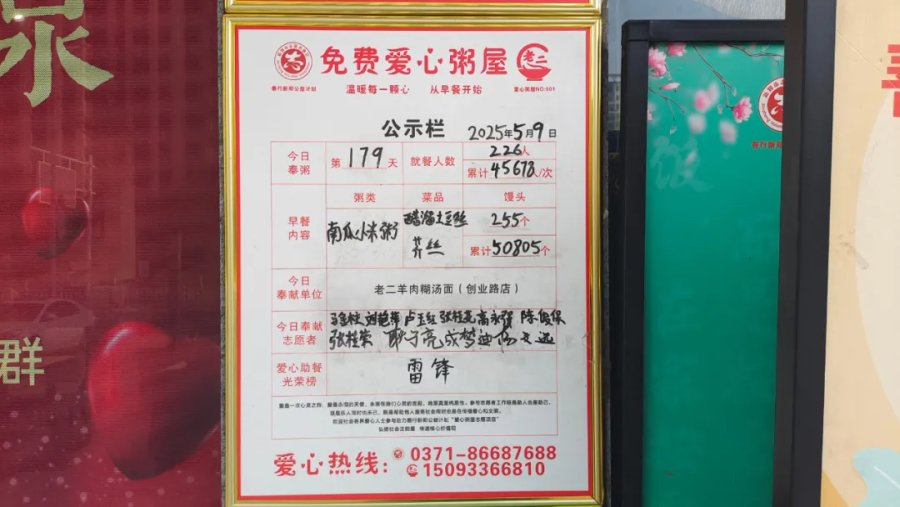 泉
群
免费爱心粥屋
老二
善行新郑公益计划
温暖每一颗心 从早餐开始
爱心粥屋NO:001
公示栏 2025年5月9日
今日奉粥 第179天 就餐人数 226人
累计45678人/次
早餐内容 粥类 菜品 馒头
南瓜小米粥 醋溜土豆丝 255个
芥丝 累计50805个
今日奉献单位 老二羊肉糊汤面（创业路店）
今日奉献志愿者 卢玉红 张桂花 高永强 陈俊保
张桂荣
爱心助餐光荣榜 雷锋
弘扬社会正能量 传递核心价值观
爱心热线：0371-86687688
15093366810